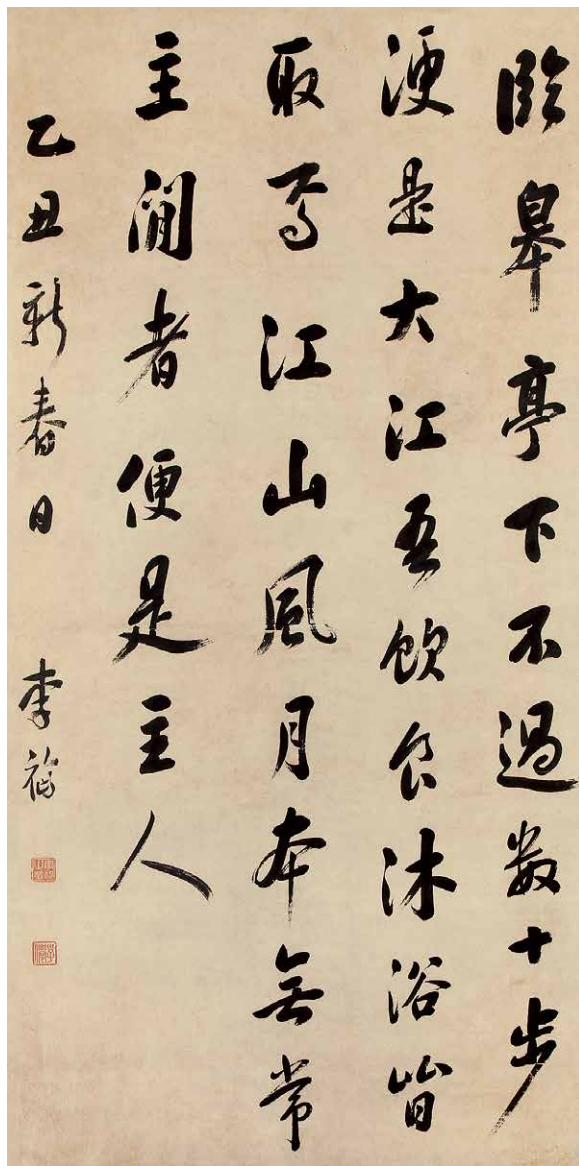 臨皋亭下不過數十步
便是大江吾飲食沐浴皆
取焉江山風月本無常
主閒者便是主人
乙丑新春日 李福